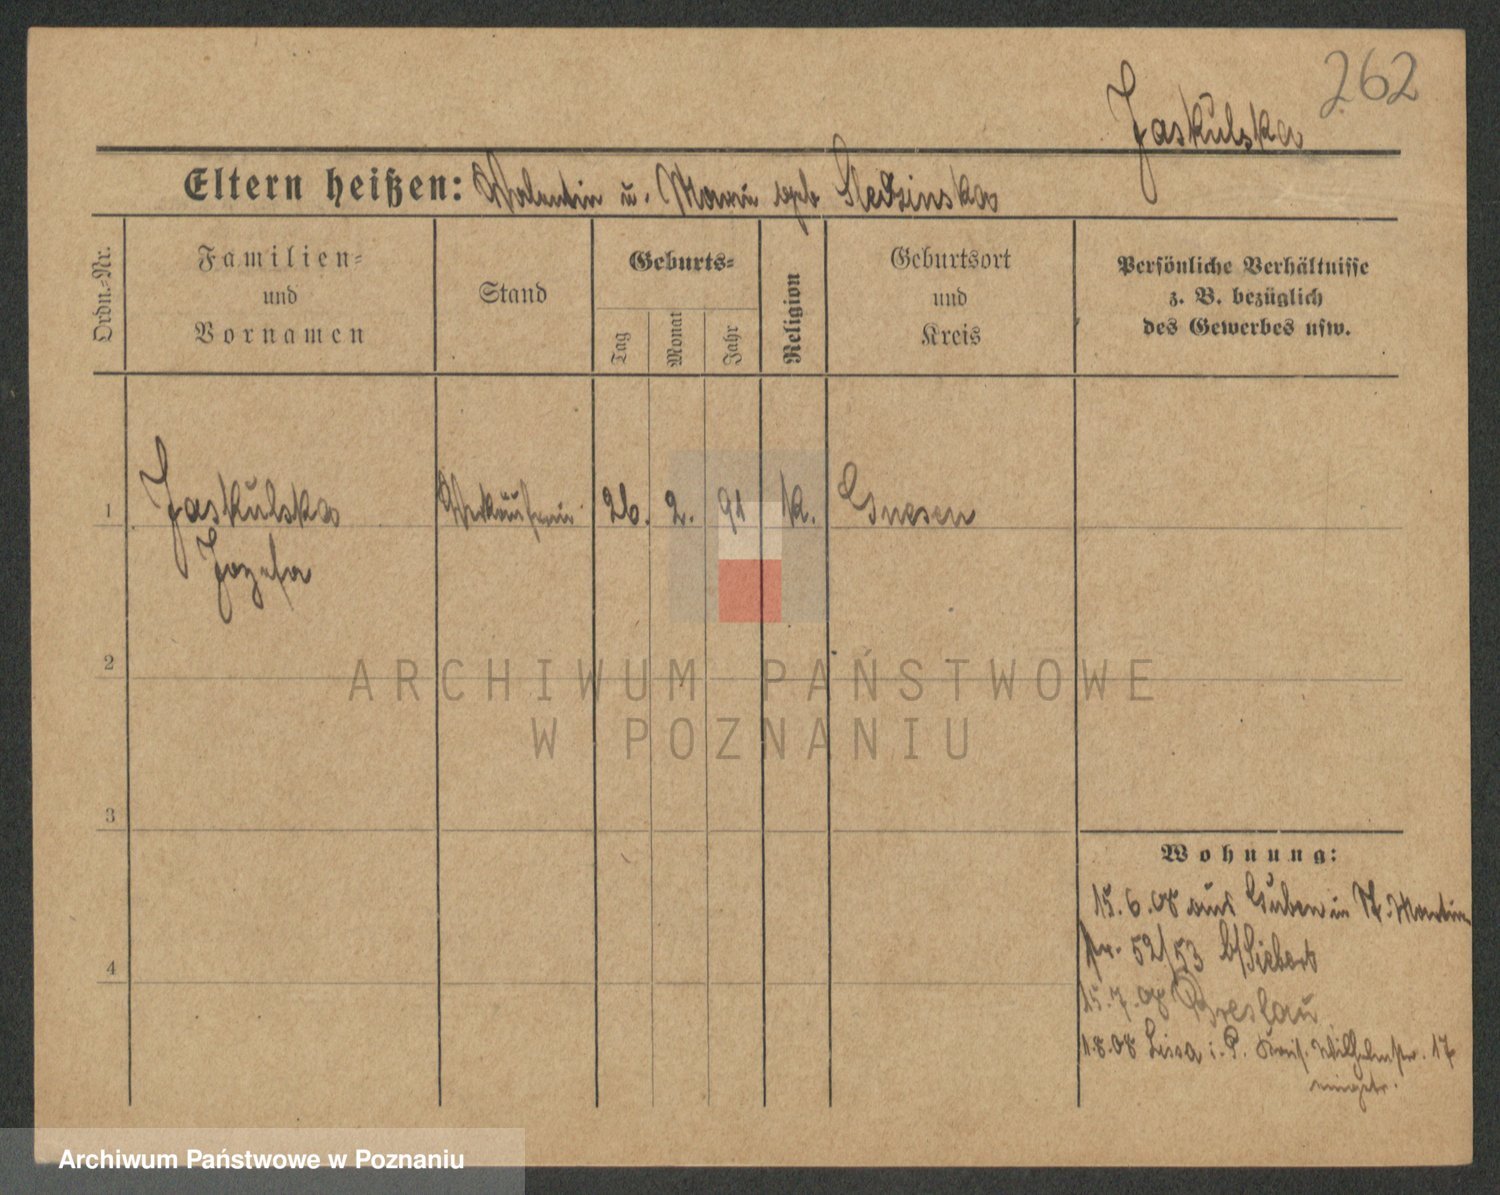 262
Jaskulska
Eltern heißen: Valentin u. Maria geb Sledzinska
Ordn.-Nr.
Familien-
und
Vornamen
Stand
Geburts-
Tag
Monat
Jahr
Religion
Geburtsort
und
Kreis
Persönliche Verhältnisse
z. B. bezüglich
des Gewerbes usw.
1 Jaskulska Verkäuferin 26. 2. 91 K. Gnesen
Jozefa
2
ARCHIWUM PAŃSTWOWE
W POZNANIU
3
Wohnung:
15.6.08 aus Guben in St. Martin
str. 52/53 b/Siebert
4
15.7.08 Breslau
1.8.08 Lissa i. P. Wilhelmstr. 17
eingetr.
Archiwum Państwowe w Poznaniu